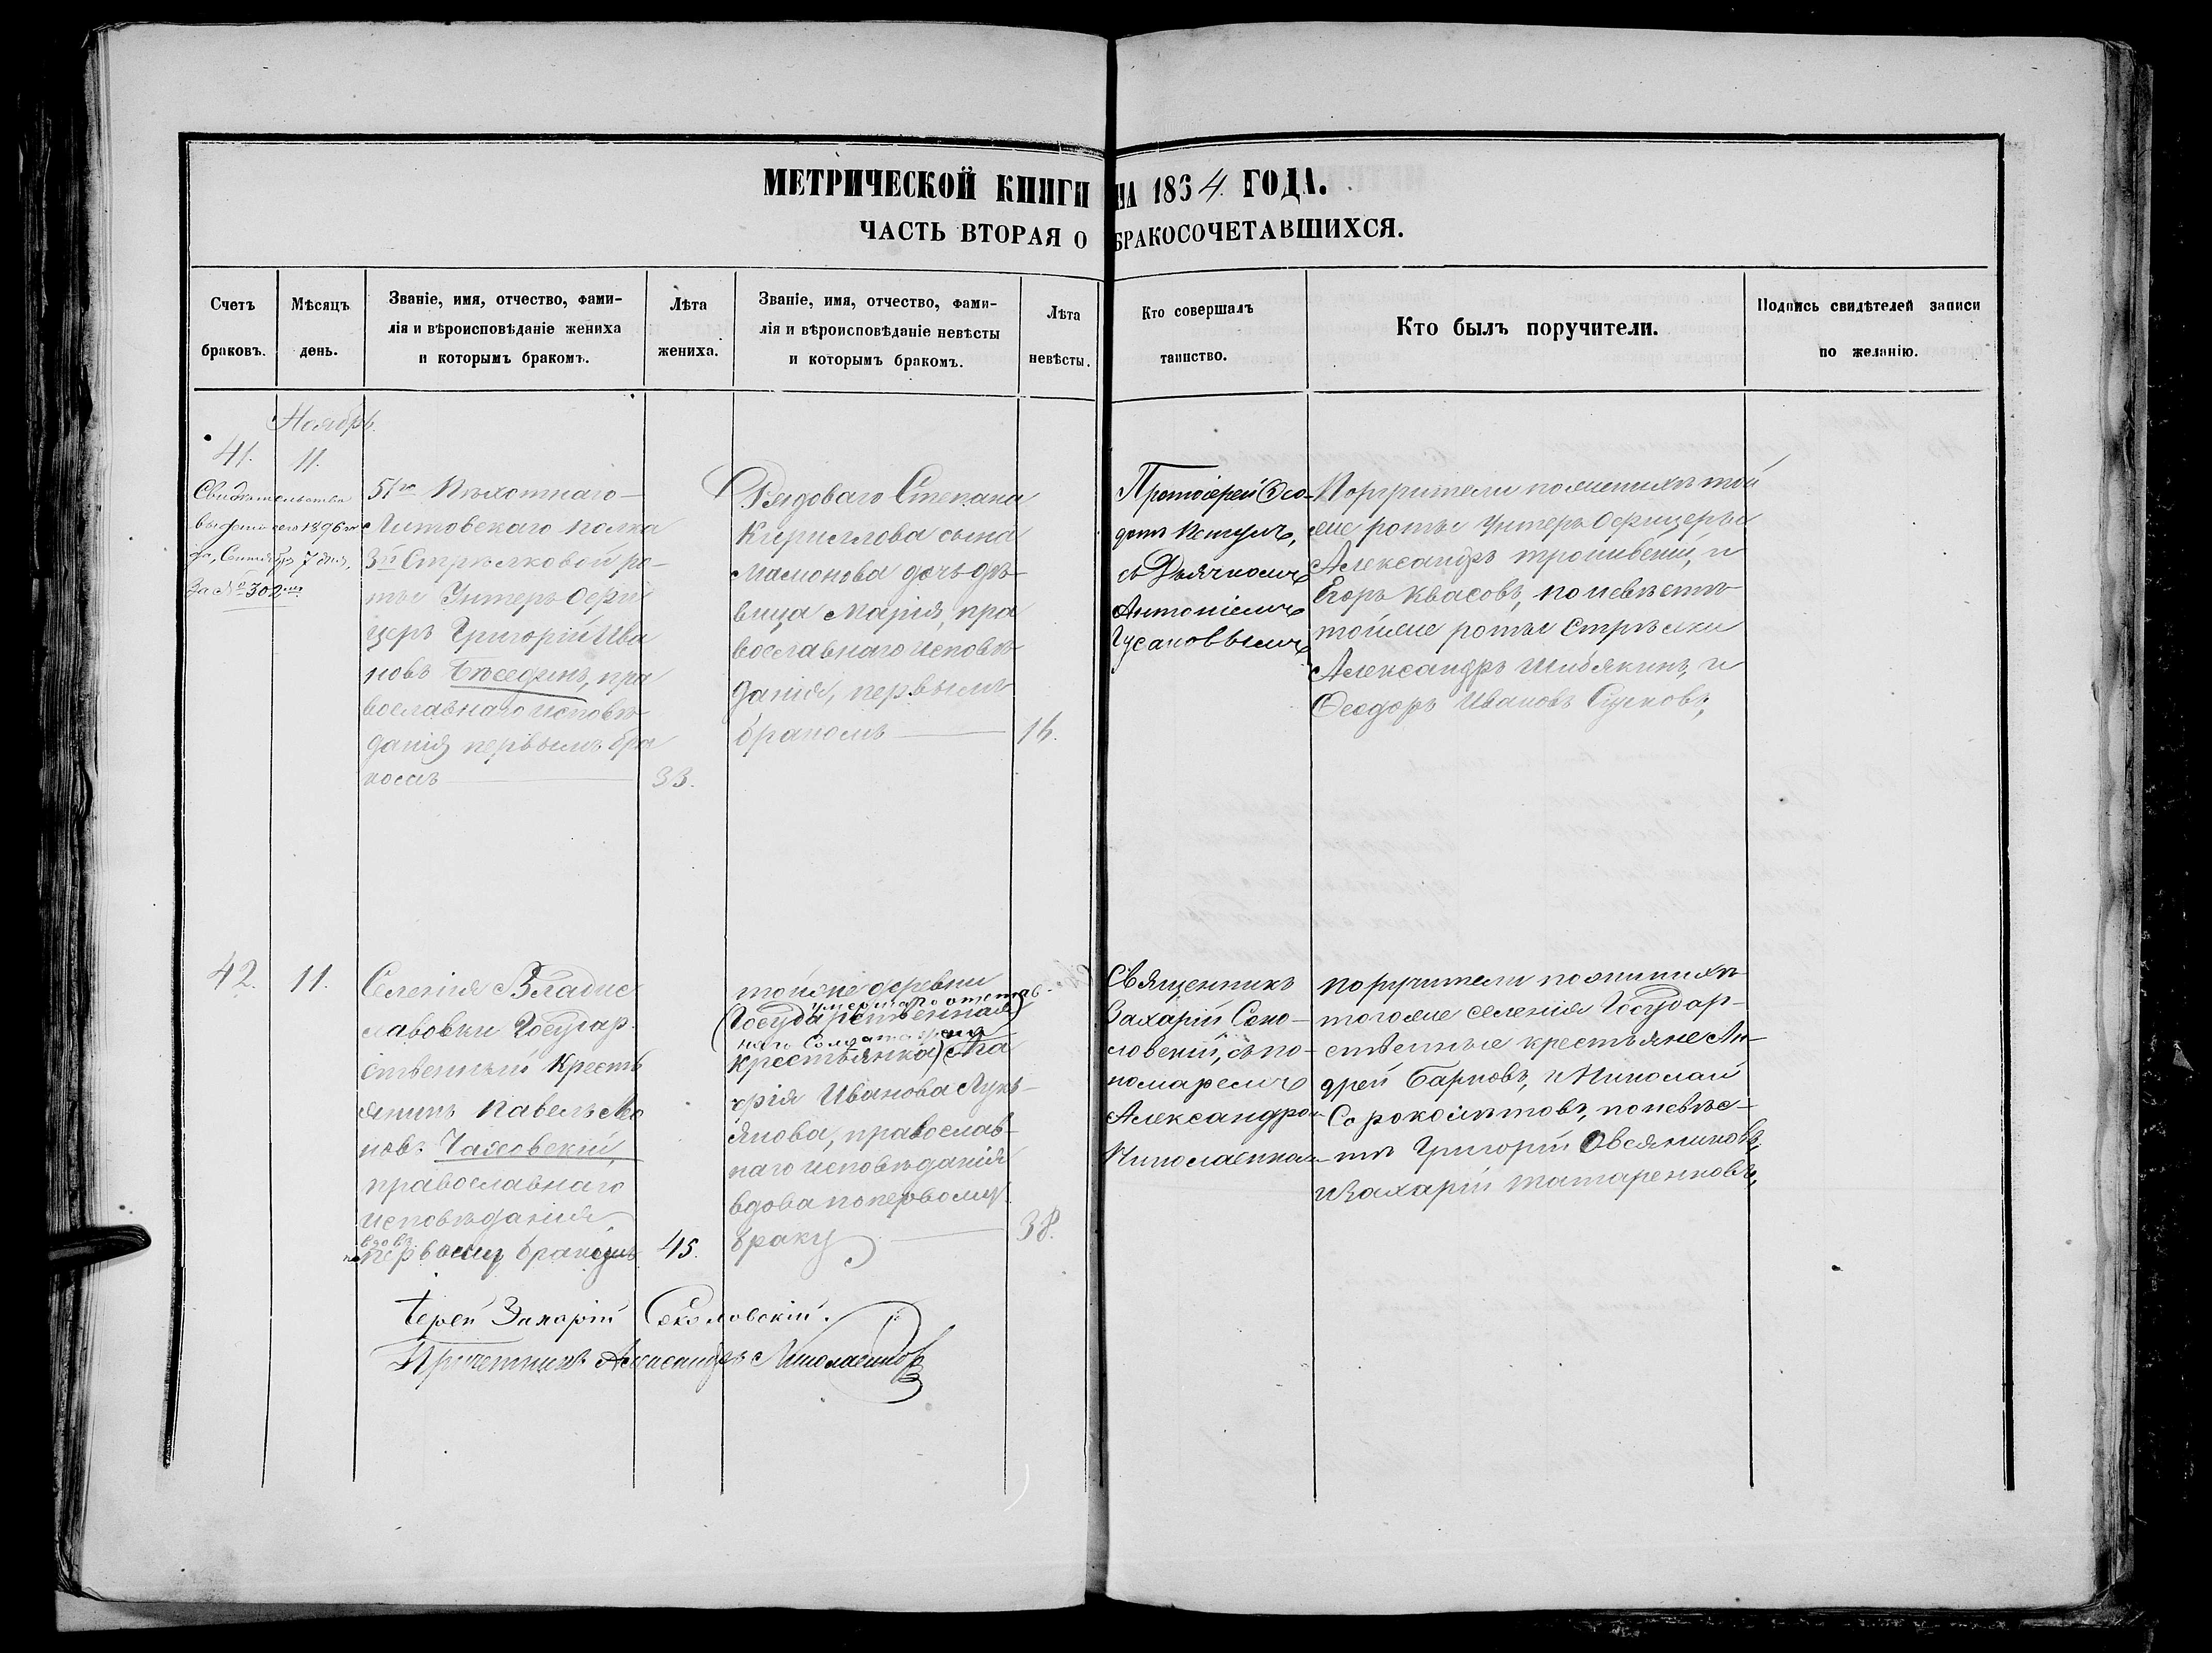 МЕТРИЧЕСКОЙ КНИГИ НА 1864. ГОДА.
ЧАСТЬ ВТОРАЯ О БРАКОСОЧЕТАВШИХСЯ.
Счетъ
браковъ.
Мѣсяцъ
день.
Званіе, имя, отчество, фами-
лія и вѣроисповѣданіе жениха
и которымъ бракомъ.
Лѣта
жениха.
Званіе, имя, отчество, фами-
лія и вѣроисповѣданіе невѣсты
и которымъ бракомъ.
Лѣта
невѣсты.
Кто совершалъ
таинство.
Кто былъ поручители.
Подпись свидѣтелей записи
по желанію.
Ноябрь.
41.
11.
Свидѣтельство
выдано сего 1896 го
да, Сентября 7 дня,
За № 302
51го Пѣхотнаго
Литовскаго полка
3й Стрѣлковой ро-
ты Унтеръ Офи
церъ Григорій Ива
новъ Бѣсединъ, пра
вославнаго исповѣ-
данія первымъ бра
комъ
33.
Рядоваго Степана
Кириллова сына
Мамонова дочь дѣ-
вица Марія, пра
вославнаго исповѣ
данія, первымъ
бракомъ
16.
Протоіерей Ѳео-
дотъ
съ Дьячкомъ
Антоніемъ
Гусановымъ
Поручители по женихѣ той
же роты Унтеръ Офицеры
Александръ и
Егоръ Квасовъ, по невѣстѣ
той же роты стрѣлки
Александръ Шибякинъ, и
Ѳеодоръ Ивановъ Сусковъ,
42.
11.
Селенія Владис
лавовки Государ
ственный Кресть
янинъ Павелъ
новъ Чаховскій,
православнаго
исповѣданія,
вдовъ
по первому браку
45.
той же деревни
умершаго отстав-
(Государственная)
наго Солдата жена
крестьянка) Ма
рія Иванова Лукь-
янова, православ-
наго исповѣданія
вдова по первому
браку
38.
Священникъ
Захарій Соко-
ловскій, съ по-
номаремъ
Александромъ
Николаенкомъ
поручители по женихѣ
того же селенія Государ-
ственные крестьяне Ан-
дрей Барковъ, и Николай
Сороколѣтовъ, по невѣс-
тѣ Григорій Овсяниковъ,
и Захарій Татаренковъ,
Іерей Захарій Соколовскій.
Причетникъ Александръ Николаенковъ